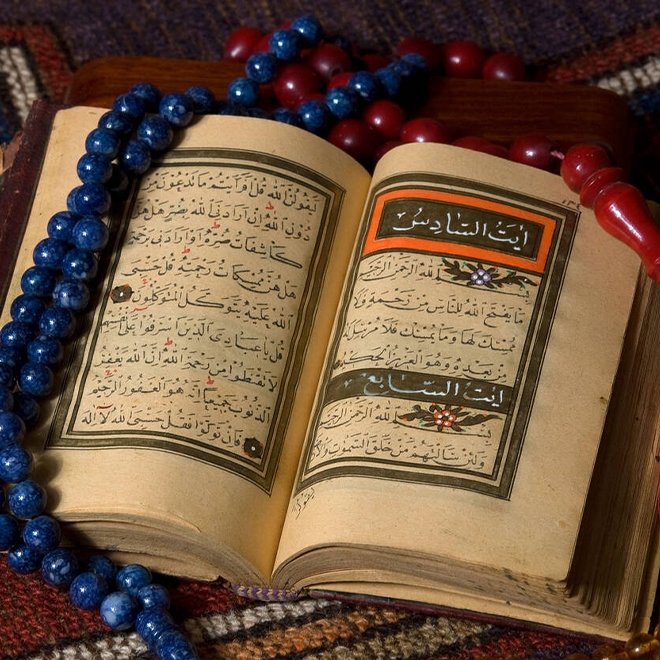 ايت السادس
بسم الله الرحمن الرحيم
ما يفتح الله للناس من رحمة فلا
ممسك لها وما يمسك فلا مرسل له
من بعده وهو العزيز الحكيم
ايت السابع
بسم الله الرحمن الرحيم
ولئن سألتهم من خلق السموات والار
ليقولن الله قل أفرأيتم ما تدعون من
دون الله إن أرادني الله بضر هل هن
كاشفات ضره أو أرادني برحمة
هل هن ممسكات رحمته قل حسبي
الله عليه يتوكل المتوكلون
قل يا عبادي الذين أسرفوا على أنفسهم
لا تقنطوا من رحمة الله إن الله يغفر
الذنوب جميعا إنه هو الغفور الرحيم
فإن تولوا فقل حسبي الله لا إله